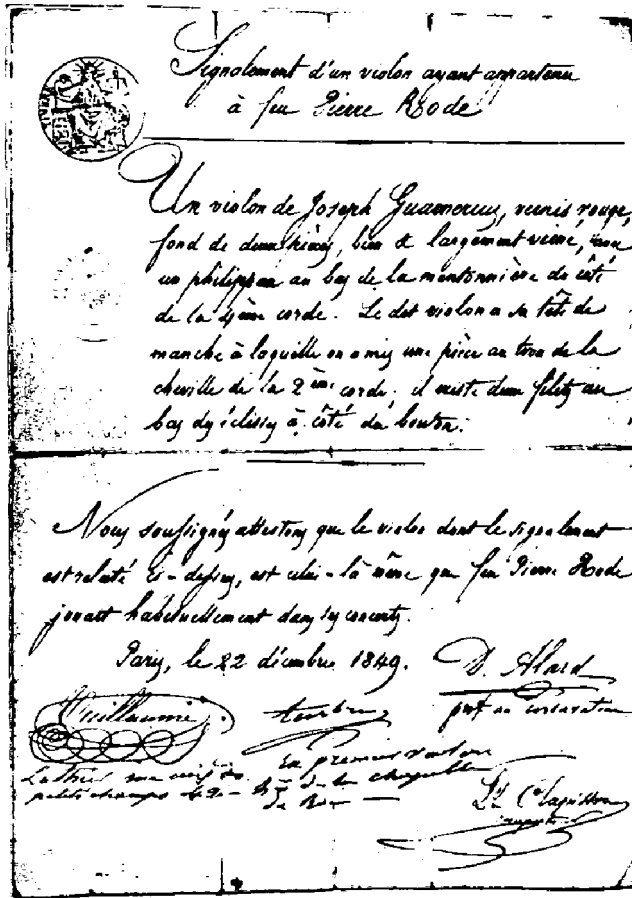 Signalement d'un violon ayant appartenu
à feu Pierre Rode
Un violon de Joseph Guarnerius, vernis rouge,
fond de deux pièces, bien & largement veiné,
un au bas de la mentonnière du côté
de la 4ème corde. Le dit violon a sa tête de
manche à laquelle on a mis une pièce au trou de la
cheville de la 2ème corde; il existe deux filets au
bas des éclisses à côté du bouton.
Nous soussignés attestons que le violon dont le signalement
est relaté ci-dessus, est celui-là même que feu Pierre Rode
jouait habituellement dans ses concerts.
Paris, le 22 décembre 1849. D. Alard
Vuillaume prof au conservatoire
Luthier rue croix des
petits champs
ex premier violon
de la chapelle
du Roi
Ls Clapisson